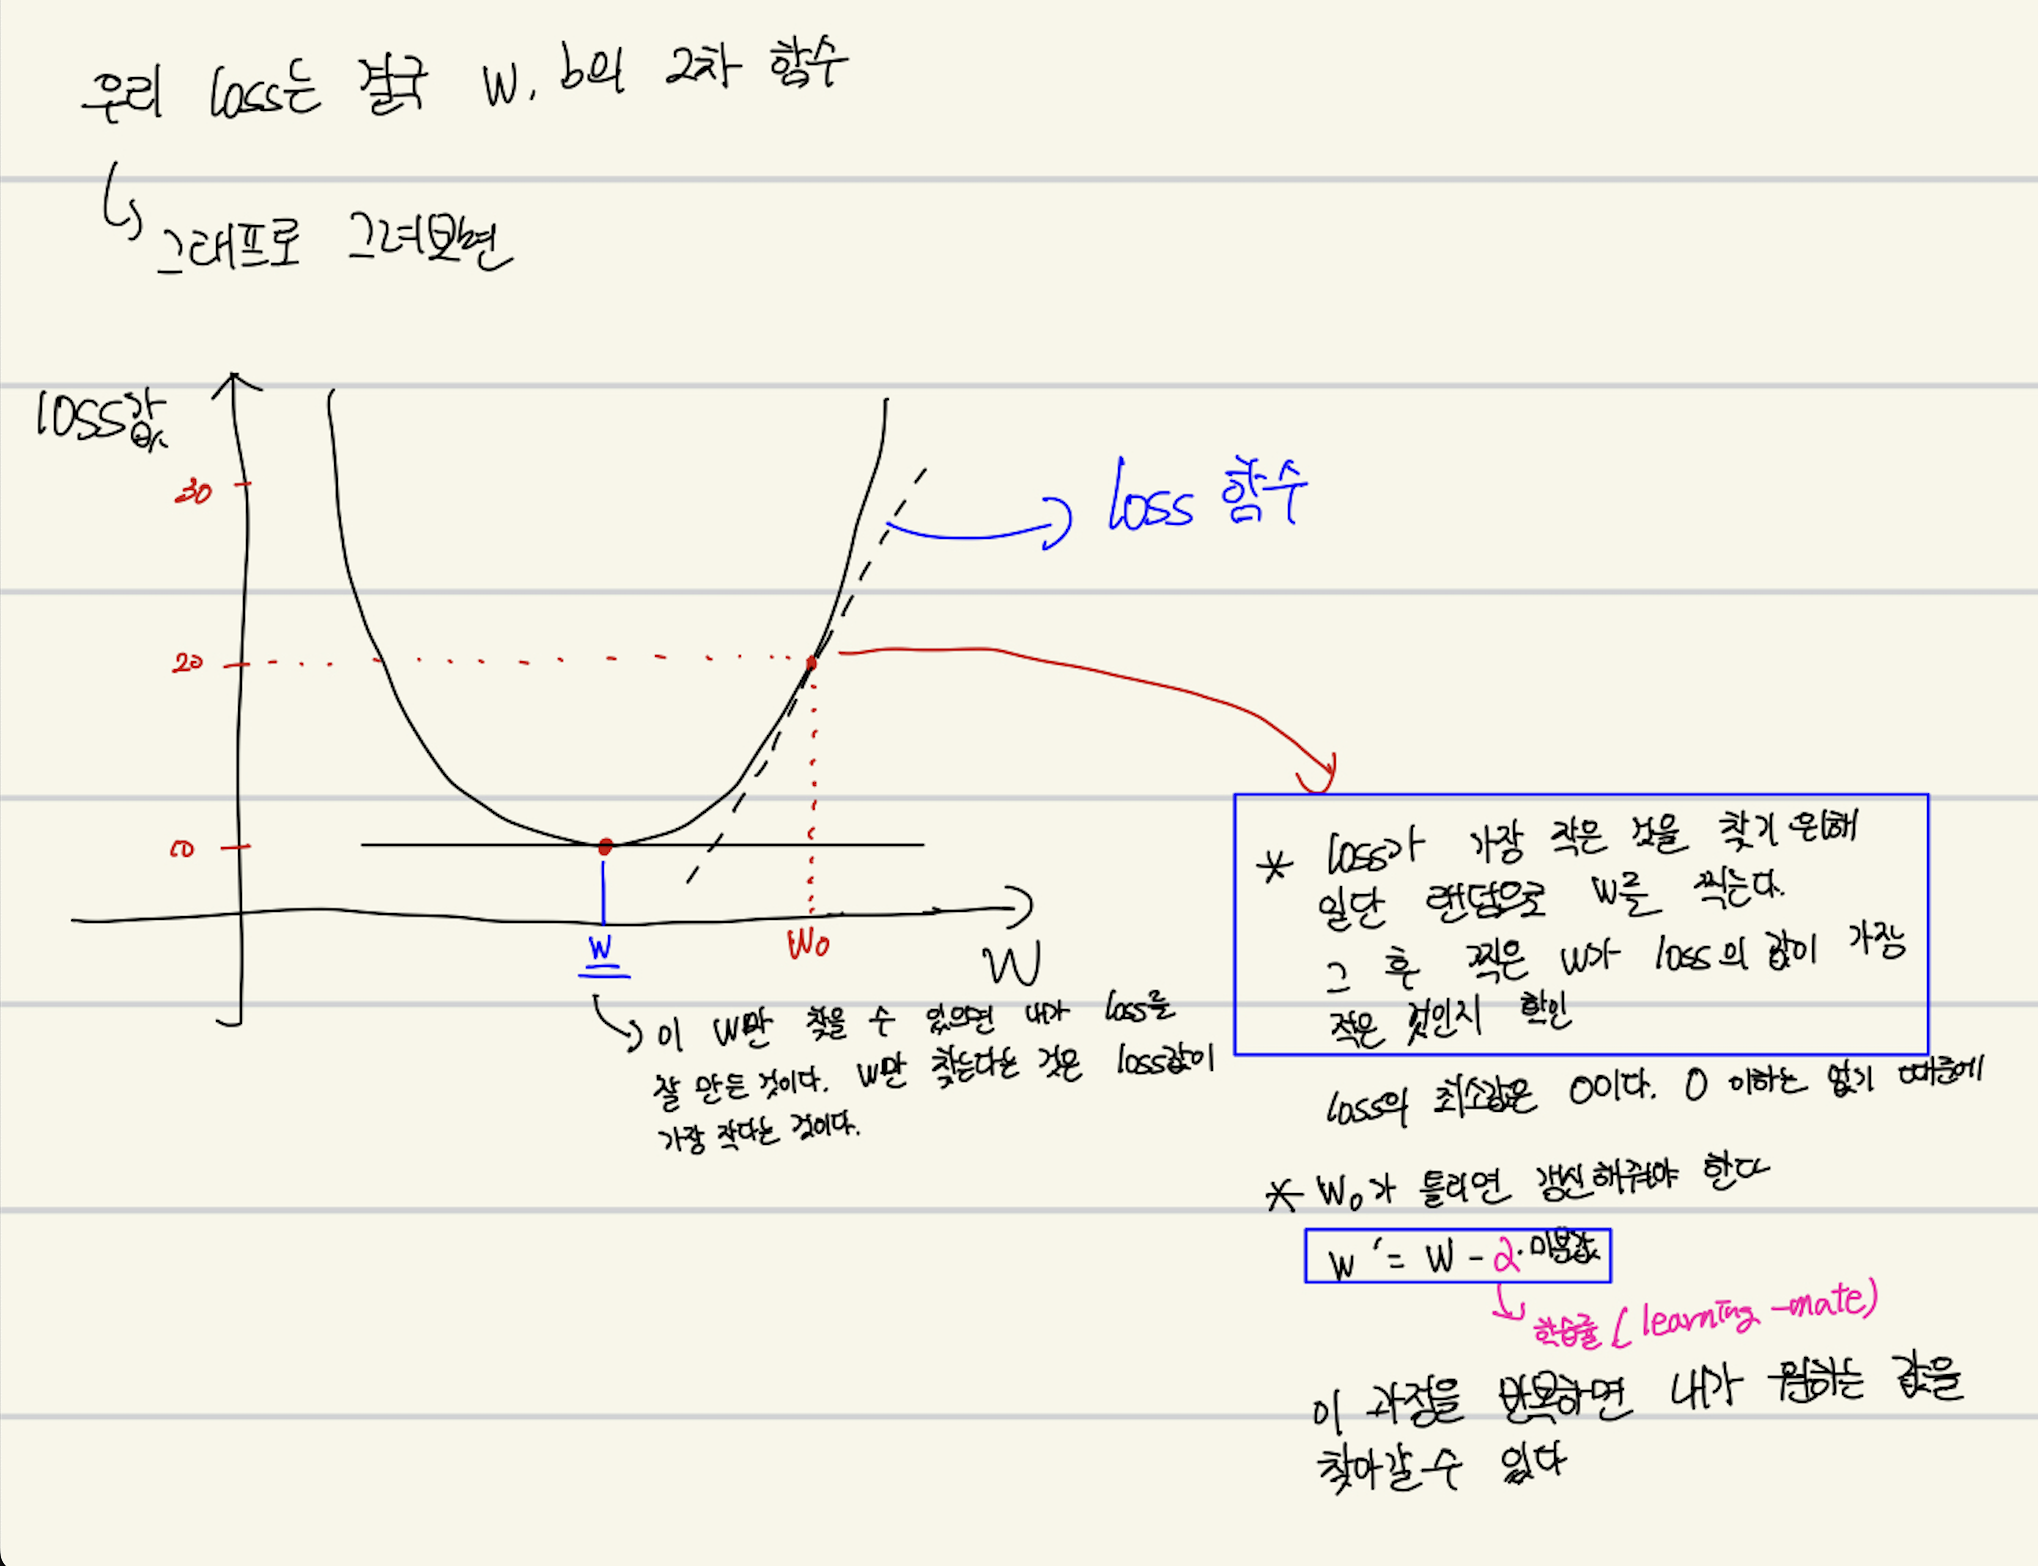 우리 loss는 결국 W, b의 2차 함수
그래프로 그려보면
loss값
30
20
10
loss 함수
w
W₀
W
이 W만 찾을 수 있으면 내가 loss를
잘 만든 것이다. W만 찾는다는 것은 loss값이
가장 작다는 것이다.
* loss가 가장 작은 것을 찾기 위해
일단 랜덤으로 W를 찍는다.
그 후 찍은 W가 loss의 값이 가장
작은 것인지 확인
loss의 최소값은 0이다. 0 이하는 없기 때문에
* W₀가 틀리면 갱신해줘야 한다
W' = W - 2·미분값
학습률 (learning-mate)
이 과정을 반복하면 내가 원하는 값을
찾아갈 수 있다